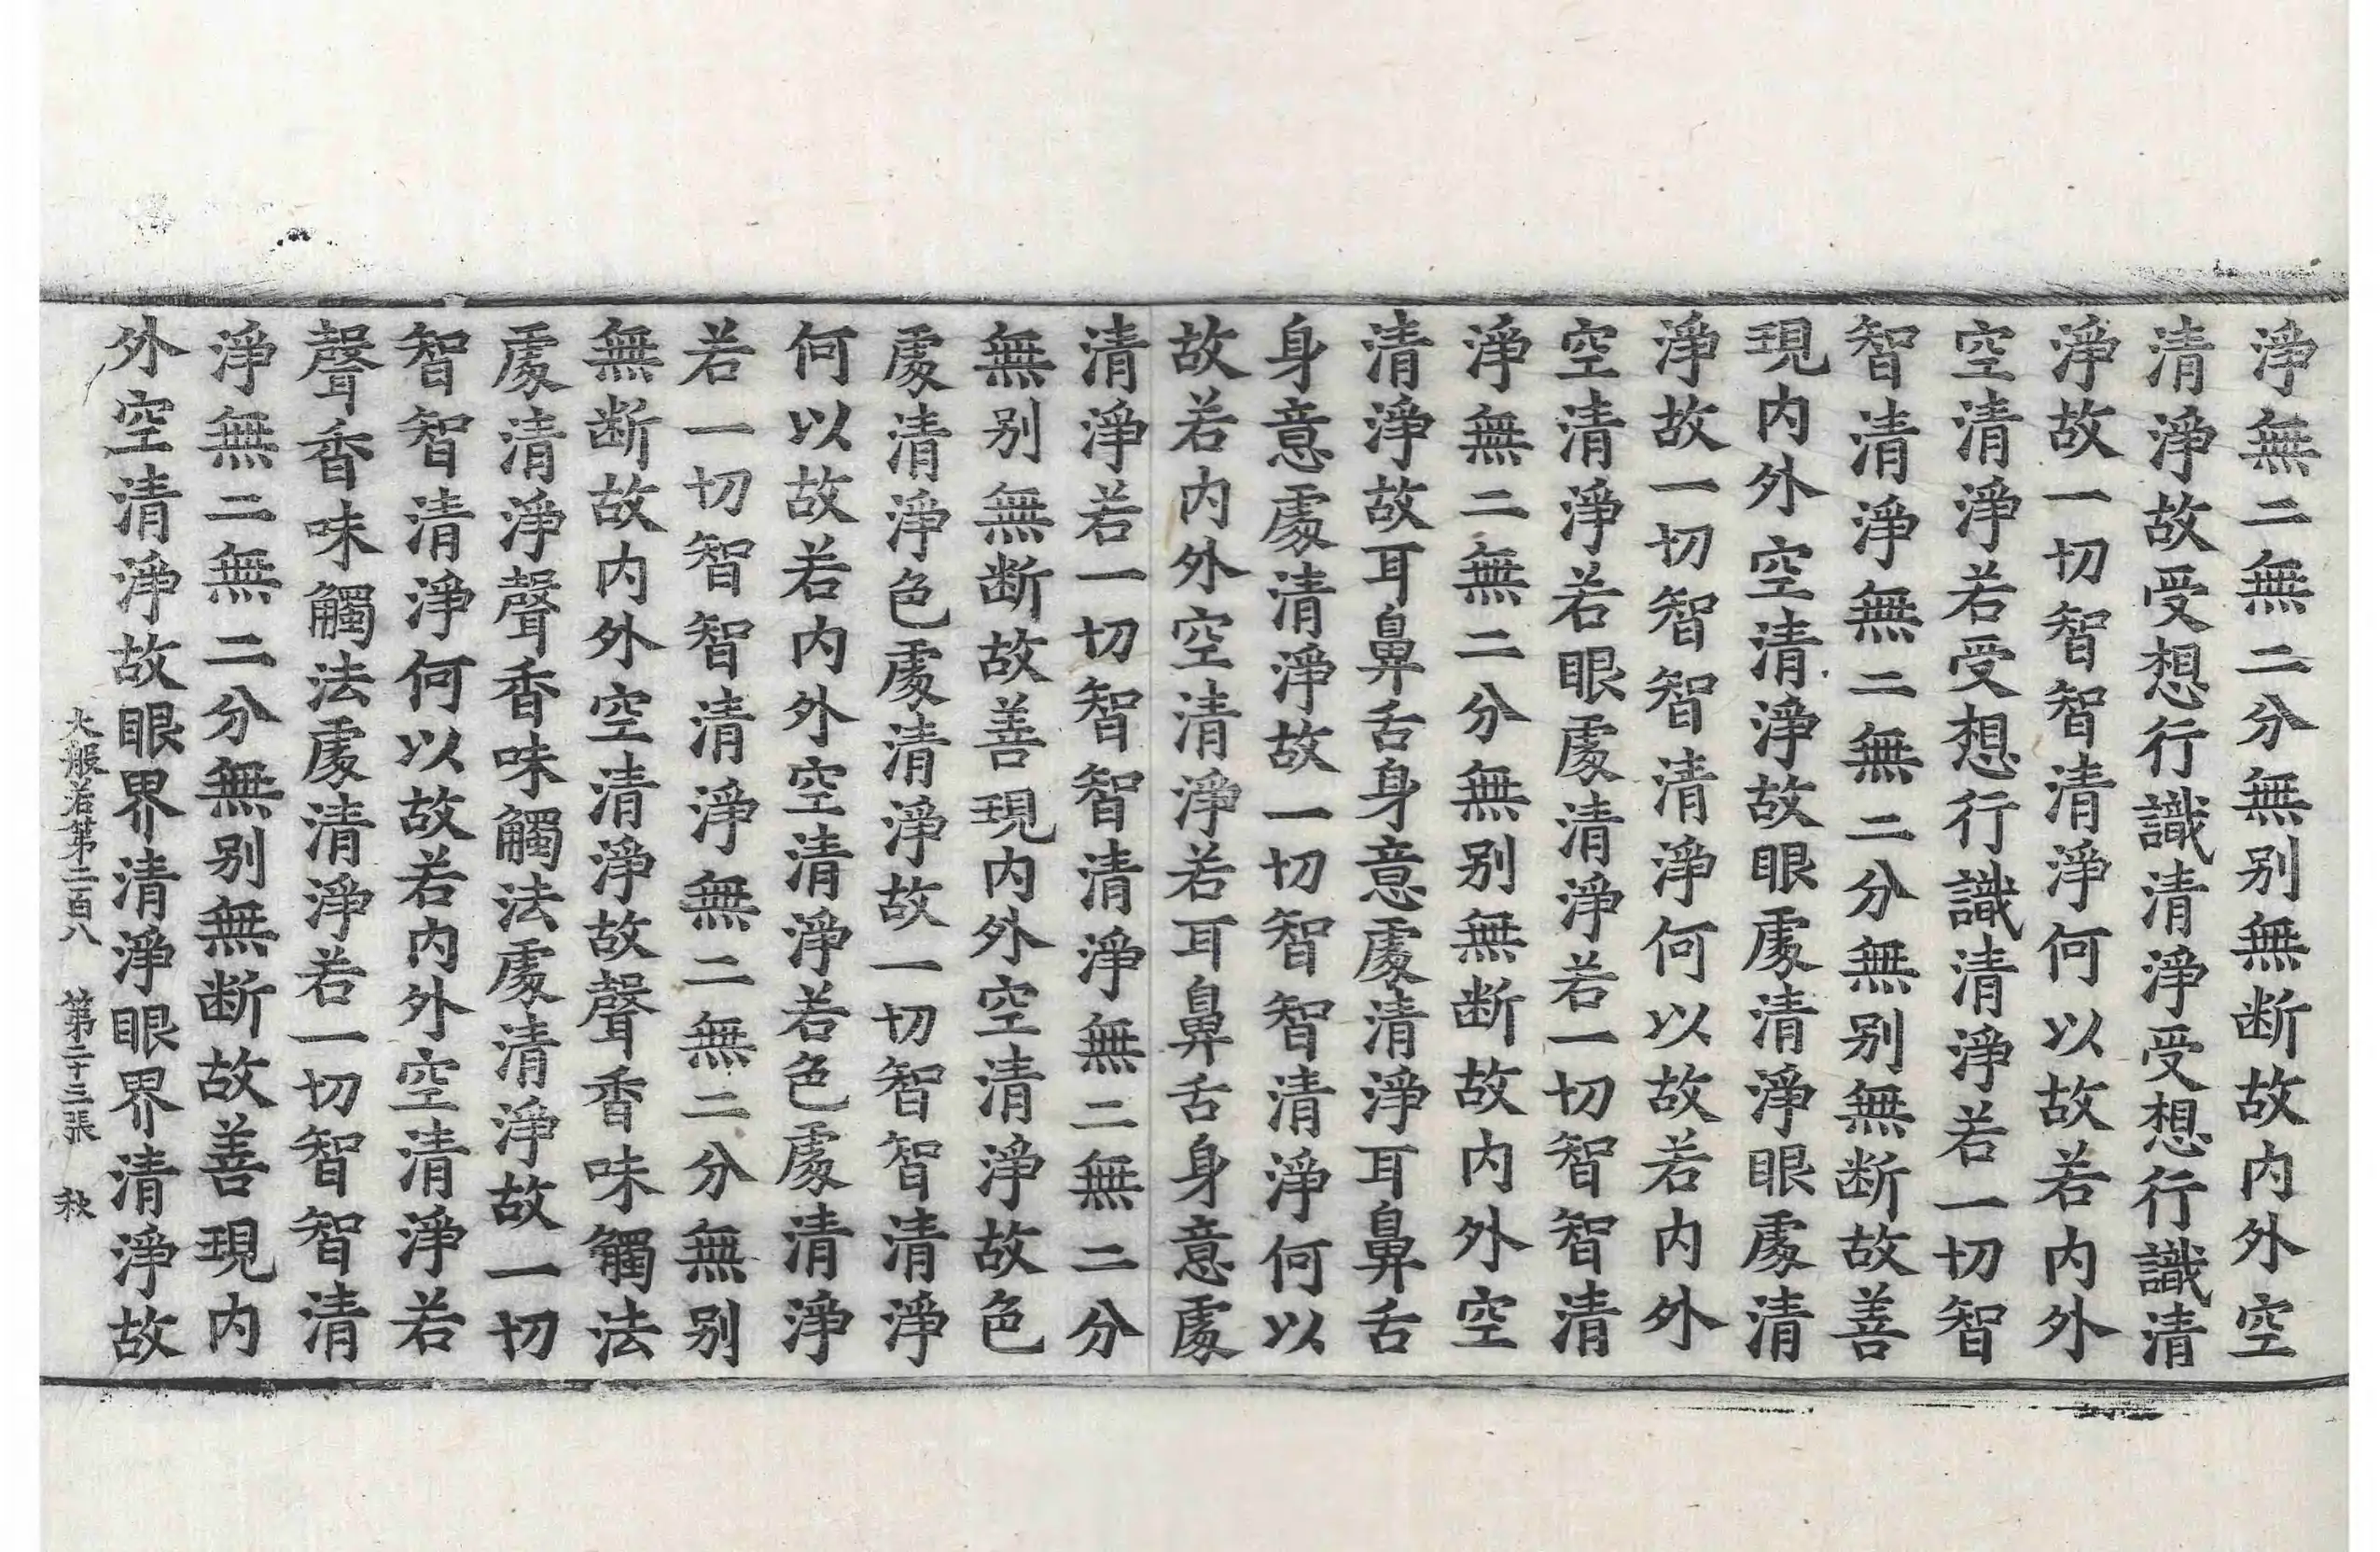 淨無二無二分無别無断故内外空
清淨故受想行識清淨受想行識清
淨故一切智智清淨何以故若内外
空清淨若受想行識清淨若一切智
智清淨無二無二分無别無断故善
現内外空清淨故眼處清淨眼處清
淨故一切智智清淨何以故若内外
空清淨若眼處清淨若一切智智清
淨無二無二分無别無断故内外空
清淨故耳鼻舌身意處清淨耳鼻舌
身意處清淨故一切智智清淨何以
故若内外空清淨若耳鼻舌身意處
清淨若一切智智清淨無二無二分
無别無断故善現内外空清淨故色
處清淨色處清淨故一切智智清淨
何以故若内外空清淨若色處清淨
若一切智智清淨無二無二分無别
無断故内外空清淨故聲香味觸法
處清淨聲香味觸法處清淨故一切
智智清淨何以故若内外空清淨若
聲香味觸法處清淨若一切智智清
淨無二無二分無别無断故善現内
外空清淨故眼界清淨眼界清淨故
大般若第二百八 第二十三張 秋